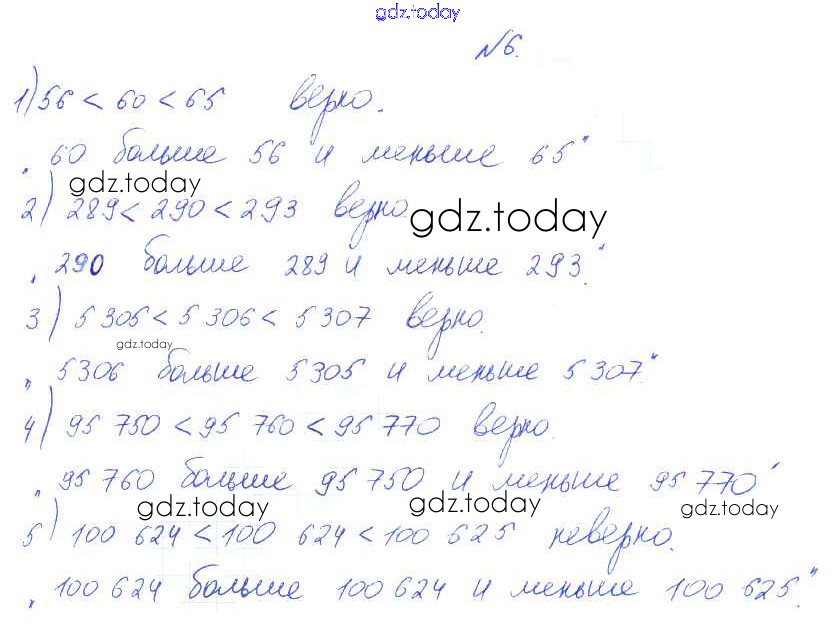 gdz.today
№6.
1) 56 < 60 < 65 верно.
„60 больше 56 и меньше 65"
gdz.today
2) 289 < 290 < 293 верно.
gdz.today
„290 больше 289 и меньше 293."
3) 5 305 < 5 306 < 5 307 верно.
gdz.today
„5306 больше 5305 и меньше 5307."
4) 95 750 < 95 760 < 95 770 верно.
„95 760 больше 95 750 и меньше 95 770"
gdz.today gdz.today gdz.today
5) 100 624 < 100 624 < 100 625 неверно.
„100 624 больше 100 624 и меньше 100 625."